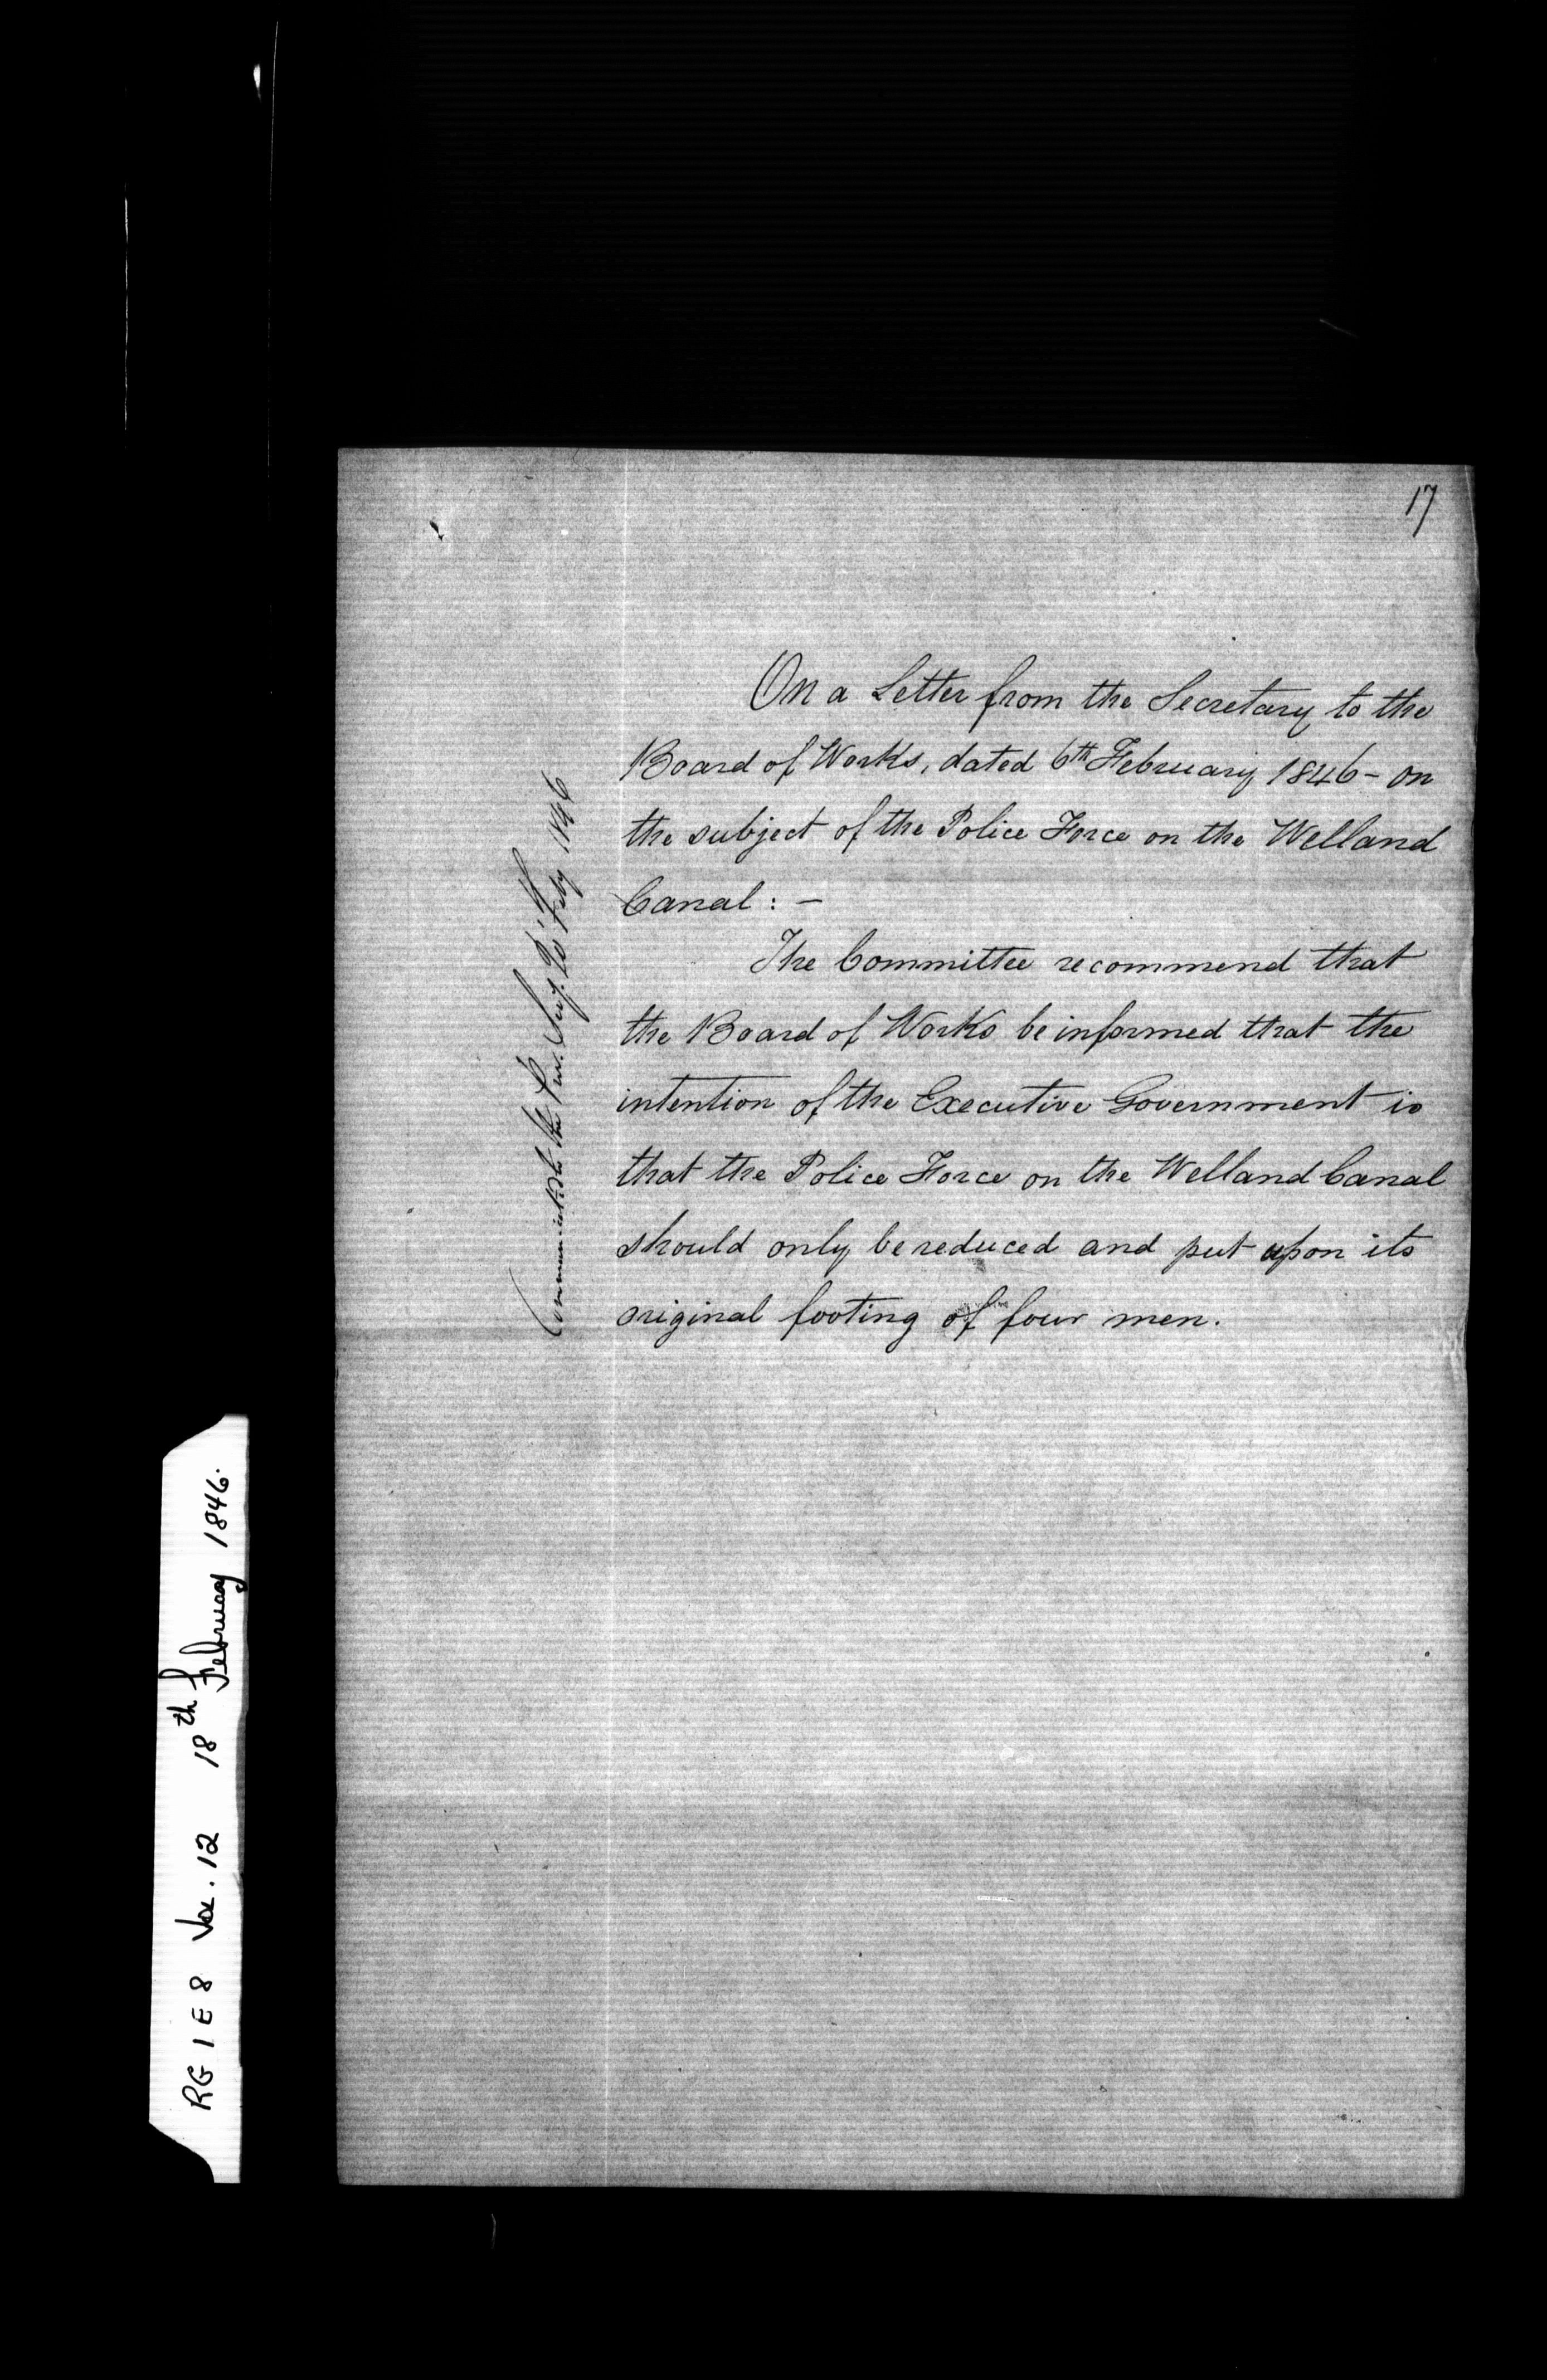 17
On a Letter from the Secretary to the
Board of Works, dated 6th February 1846 - on
the subject of the Police Force on the Welland
Canal : -
The Committee recommend that
the Board of Works be informed that the
intention of the Executive Government is
that the Police Force on the Welland Canal
should only be reduced and put upon its
original footing of four men.
to the
Feby 1846
RG 1 E 8 Vol. 12 18th February 1846.